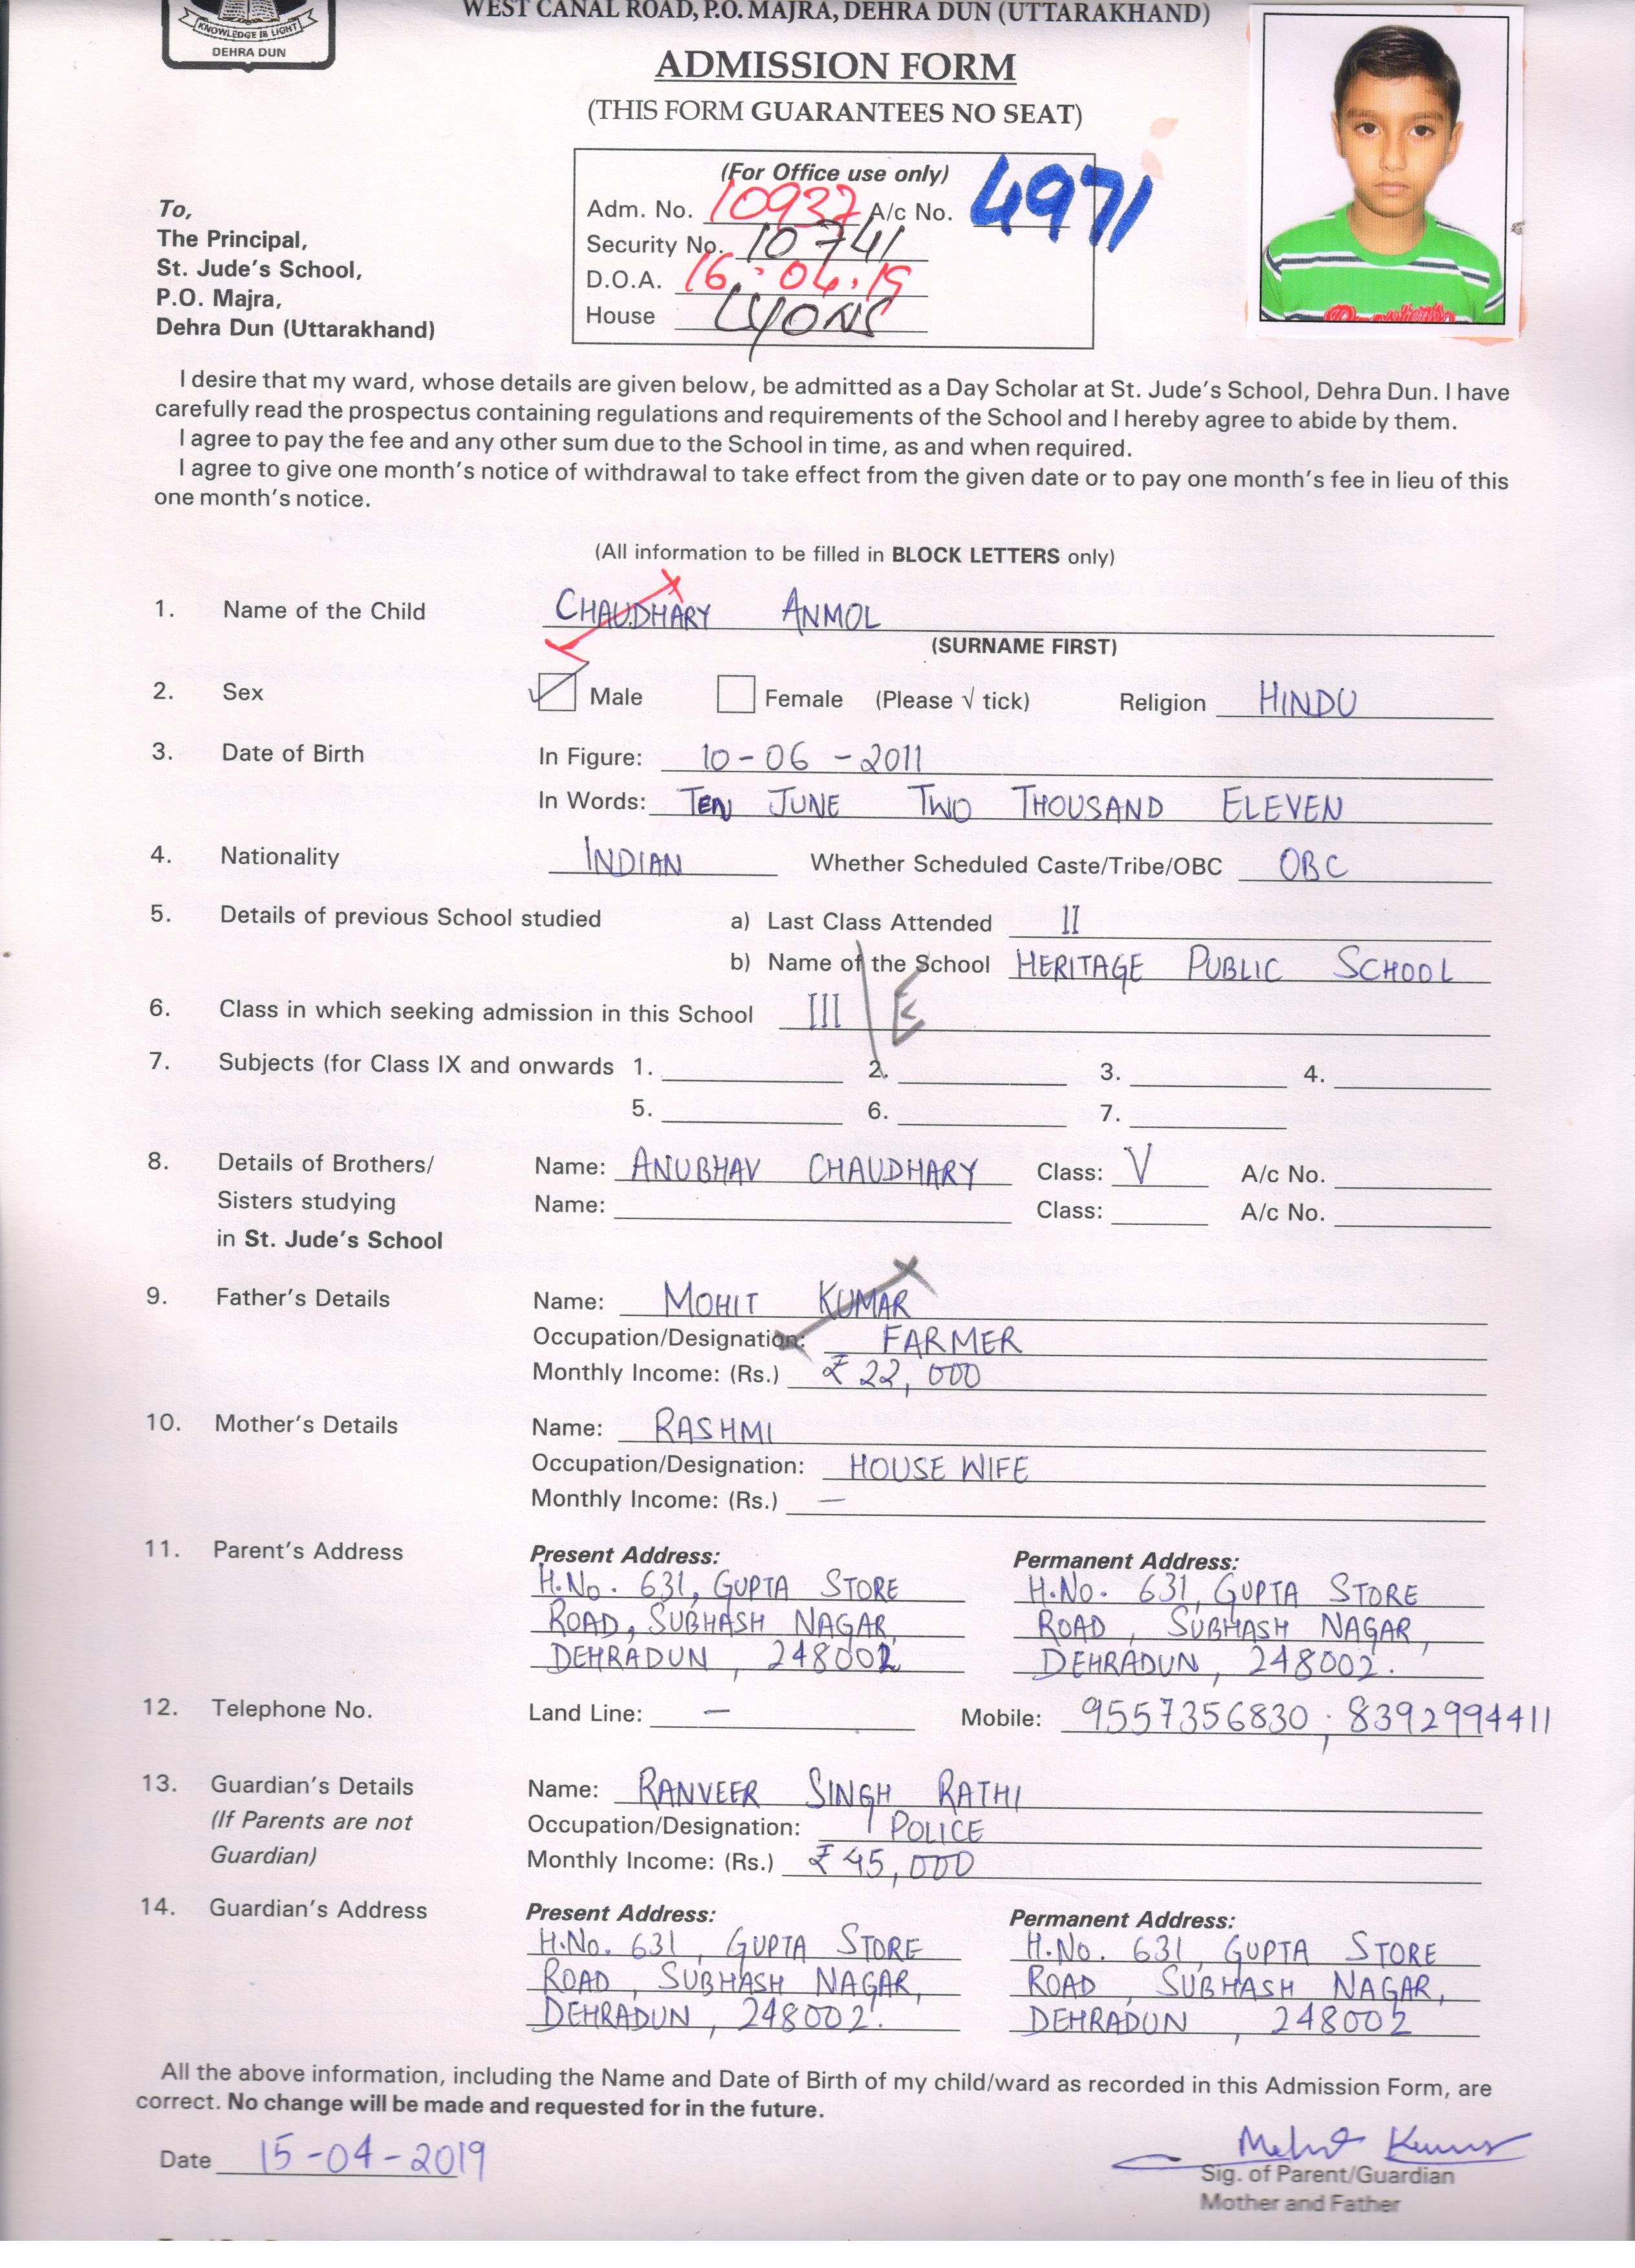 WEST CANAL ROAD, P.O. MAJRA, DEHRA DUN (UTTARAKHAND)
KNOWLEDGE IS LIGHT
DEHRA DUN
ADMISSION FORM
(THIS FORM GUARANTEES NO SEAT)
(For Office use only)
Adm. No. 10937 A/c No. 4971
Security No. 10741
D.O.A. 16.04.19
House LYONS
To,
The Principal,
St. Jude's School,
P.O. Majra,
Dehra Dun (Uttarakhand)
I desire that my ward, whose details are given below, be admitted as a Day Scholar at St. Jude's School, Dehra Dun. I have
carefully read the prospectus containing regulations and requirements of the School and I hereby agree to abide by them.
I agree to pay the fee and any other sum due to the School in time, as and when required.
I agree to give one month's notice of withdrawal to take effect from the given date or to pay one month's fee in lieu of this
one month's notice.
(All information to be filled in BLOCK LETTERS only)
1. Name of the Child CHAUDHARY ANMOL
(SURNAME FIRST)
2. Sex Male Female (Please √ tick) Religion HINDU
3. Date of Birth In Figure: 10-06-2011
In Words: TEN JUNE TWO THOUSAND ELEVEN
4. Nationality INDIAN Whether Scheduled Caste/Tribe/OBC OBC
5. Details of previous School studied a) Last Class Attended II
b) Name of the School HERITAGE PUBLIC SCHOOL
6. Class in which seeking admission in this School III E
7. Subjects (for Class IX and onwards 1. 2. 3. 4.
5. 6. 7.
8. Details of Brothers/ Name: ANUBHAV CHAUDHARY Class: V A/c No.
Sisters studying Name: Class: A/c No.
in St. Jude's School
9. Father's Details Name: MOHIT KUMAR
Occupation/Designation: FARMER
Monthly Income: (Rs.) ₹ 22,000
10. Mother's Details Name: RASHMI
Occupation/Designation: HOUSE WIFE
Monthly Income: (Rs.) —
11. Parent's Address Present Address: Permanent Address:
H.No. 631, GUPTA STORE H.No. 631, GUPTA STORE
ROAD, SUBHASH NAGAR, ROAD, SUBHASH NAGAR,
DEHRADUN, 248002 DEHRADUN, 248002.
12. Telephone No. Land Line: — Mobile: 9557356830; 8392994411
13. Guardian's Details Name: RANVEER SINGH RATHI
(If Parents are not Occupation/Designation: POLICE
Guardian) Monthly Income: (Rs.) ₹ 45,000
14. Guardian's Address Present Address: Permanent Address:
H.No. 631, GUPTA STORE H.No. 631, GUPTA STORE
ROAD, SUBHASH NAGAR, ROAD, SUBHASH NAGAR,
DEHRADUN, 248002. DEHRADUN, 248002
All the above information, including the Name and Date of Birth of my child/ward as recorded in this Admission Form, are
correct. No change will be made and requested for in the future.
Date 15-04-2019 Mohit Kumar
Sig. of Parent/Guardian
Mother and Father